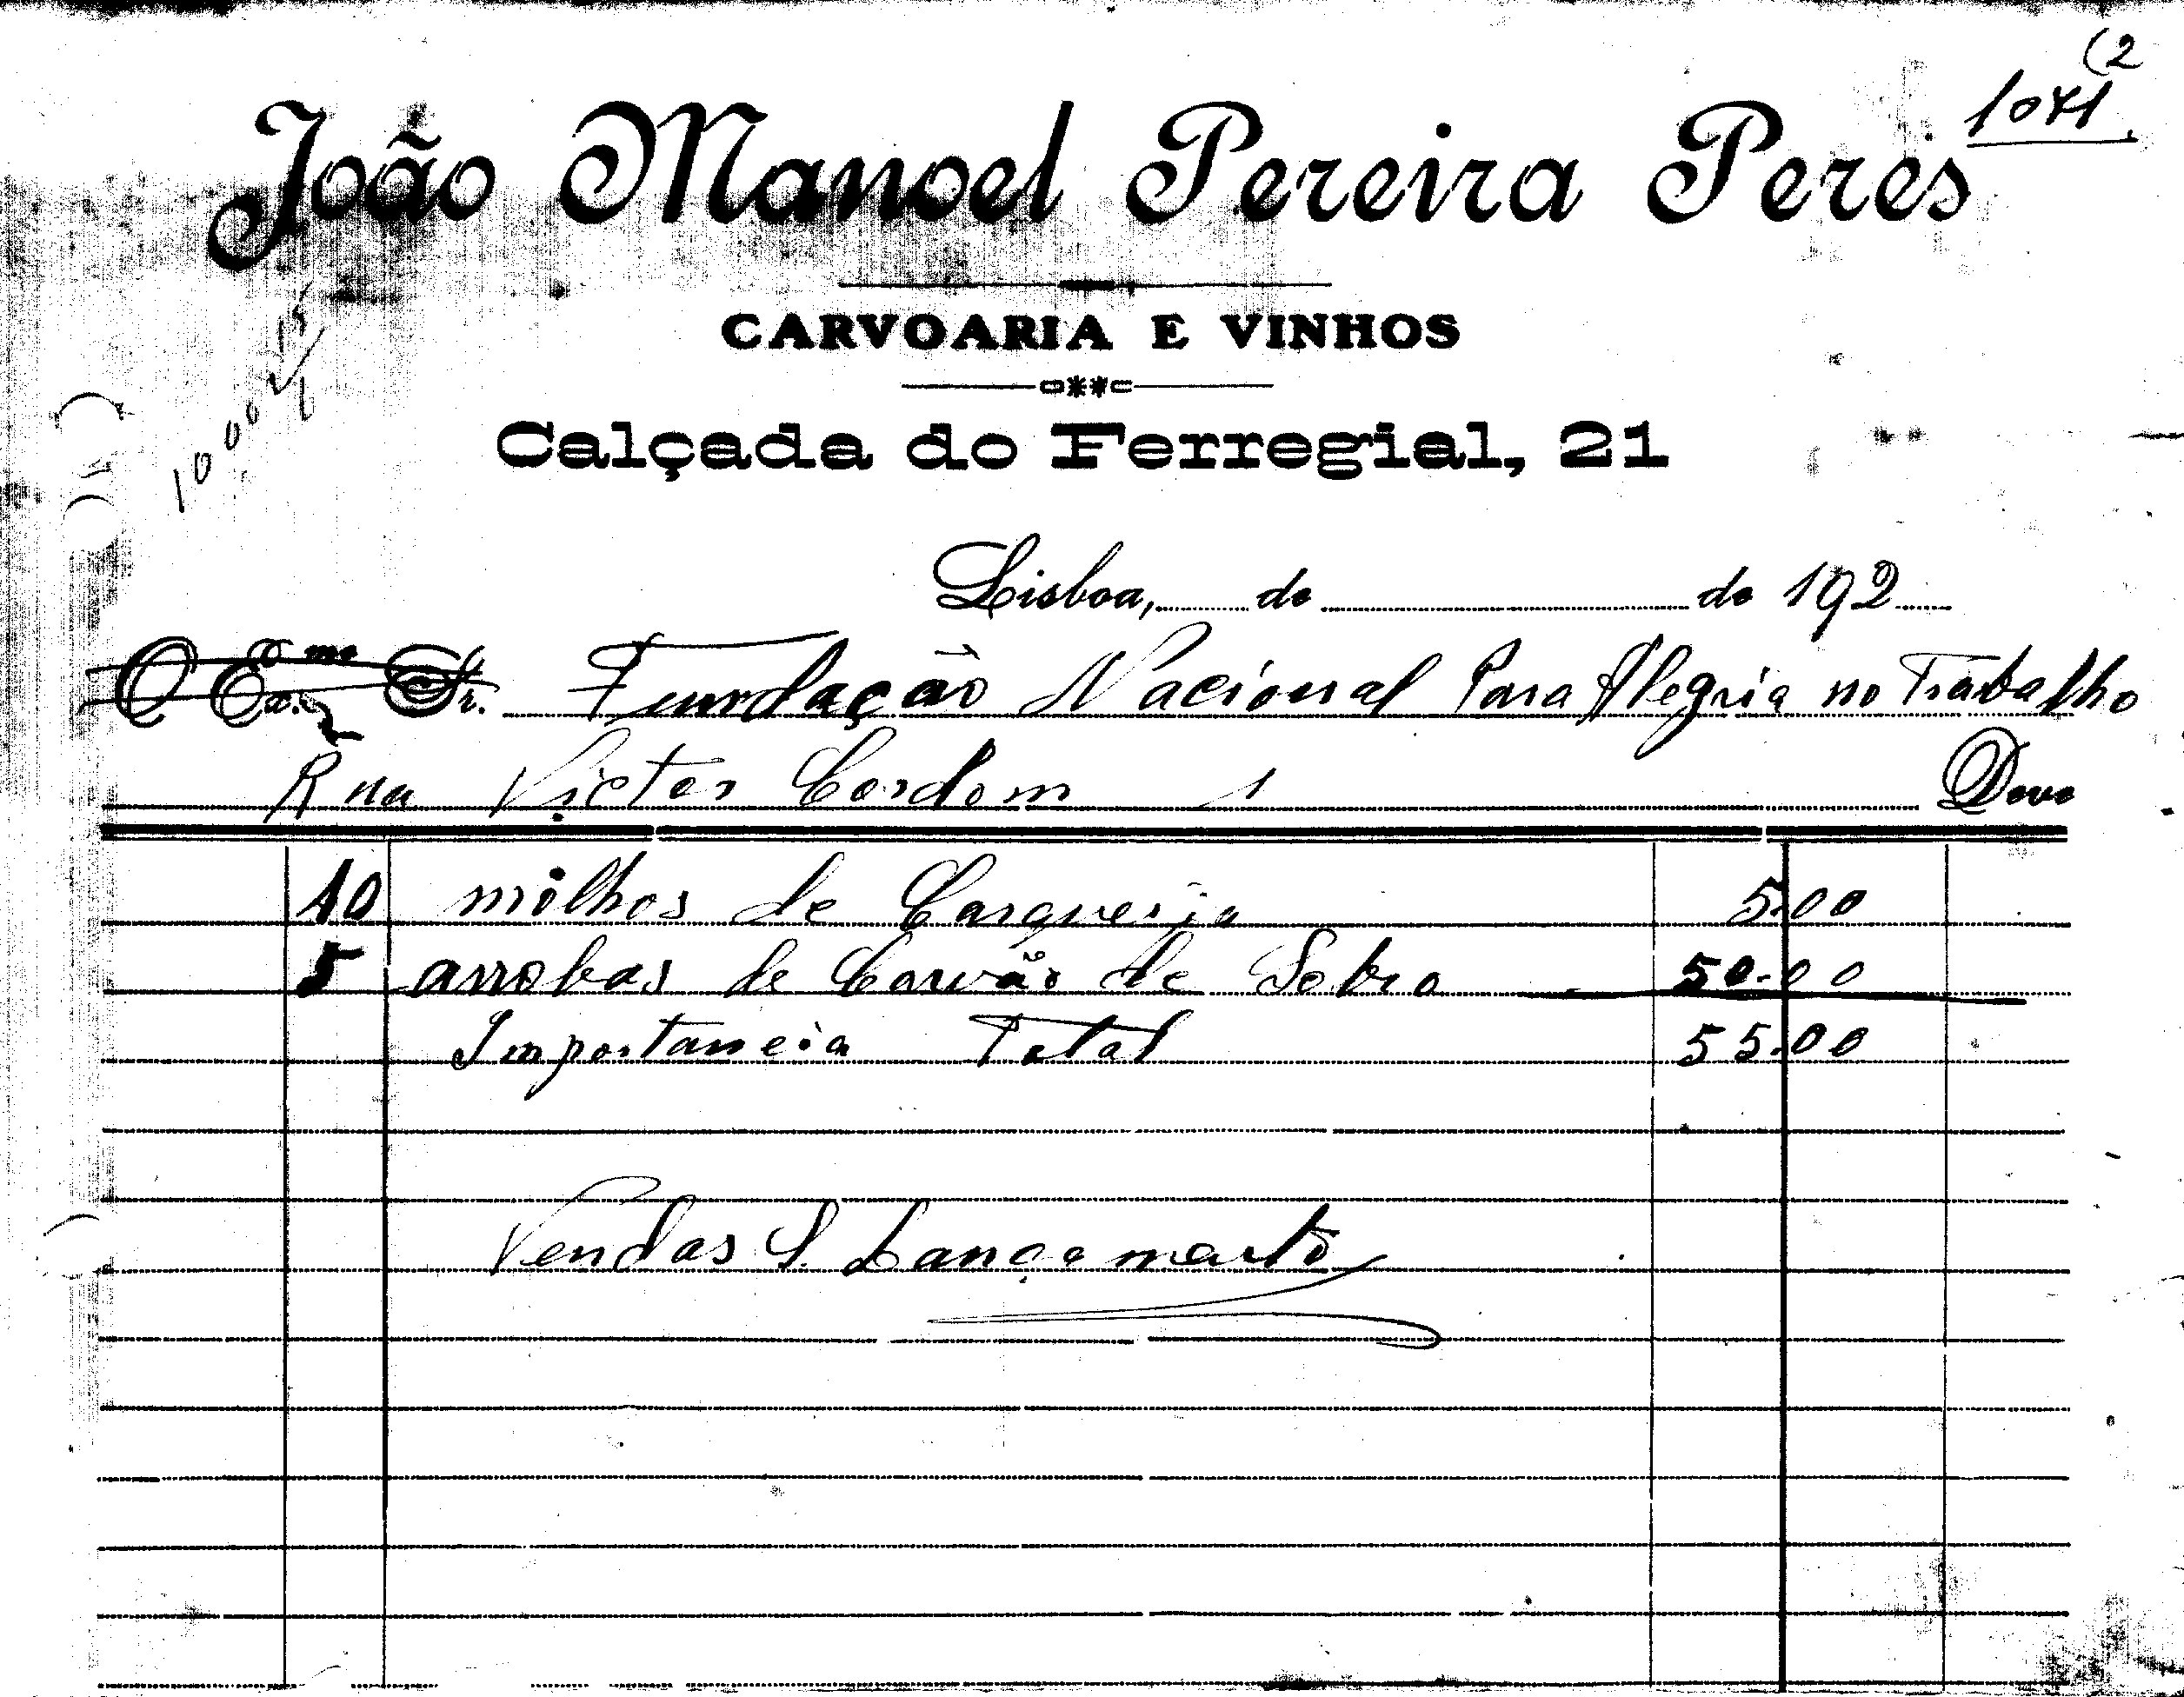 (2
1071.
João Manoel Pereira Peres
CARVOARIA E VINHOS
Calçada do Ferregial, 21
Lisboa, de de 192
O Ex.mo Sr. Fundação Nacional Para Alegria no Trabalho
Rua Victor Cordom 1 Deve
10 molhos de Carqueija 5.00
5 arrobas de Carvão de Sobro 50.00
Importancia Total 55.00
Vendas S. Lançamento